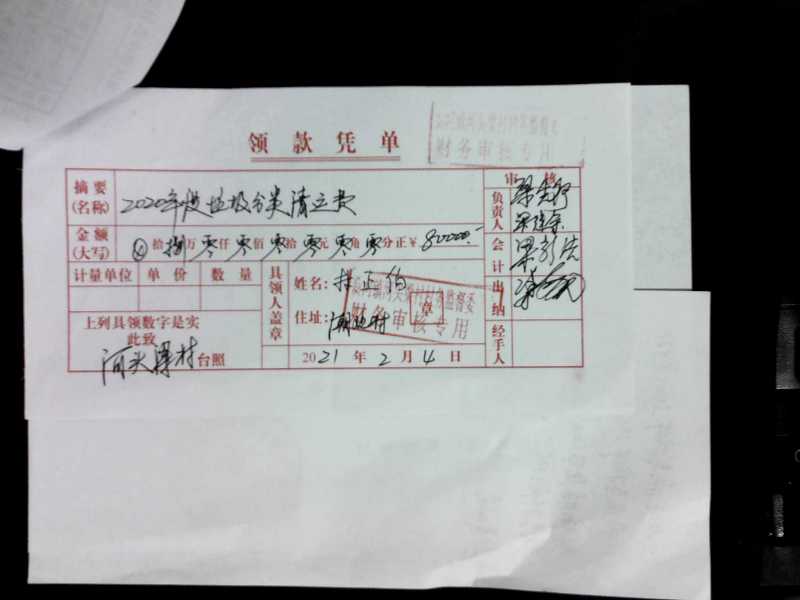 领款凭单
财务审核专用
摘要
(名称)
2020年度垃圾分类清运费
审核
负责人
金额
(大写)
ⓧ拾捌万零仟零佰零拾零元零角零分正¥80000.-
会计
计量单位 单价 数量
具领人盖章
姓名:
正伯
出纳
住址:
章
村村务监督委
财务审核专用
上列具领数字是实
此致
河头梁村台照
2021年2月4日
经手人